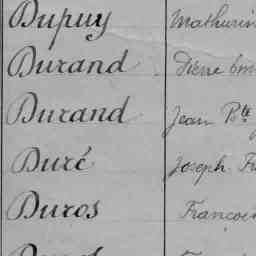 Dupuy Mathurin
Durand Pierre Em
Durand Jean Bte
Duré Joseph Fr
Duros François